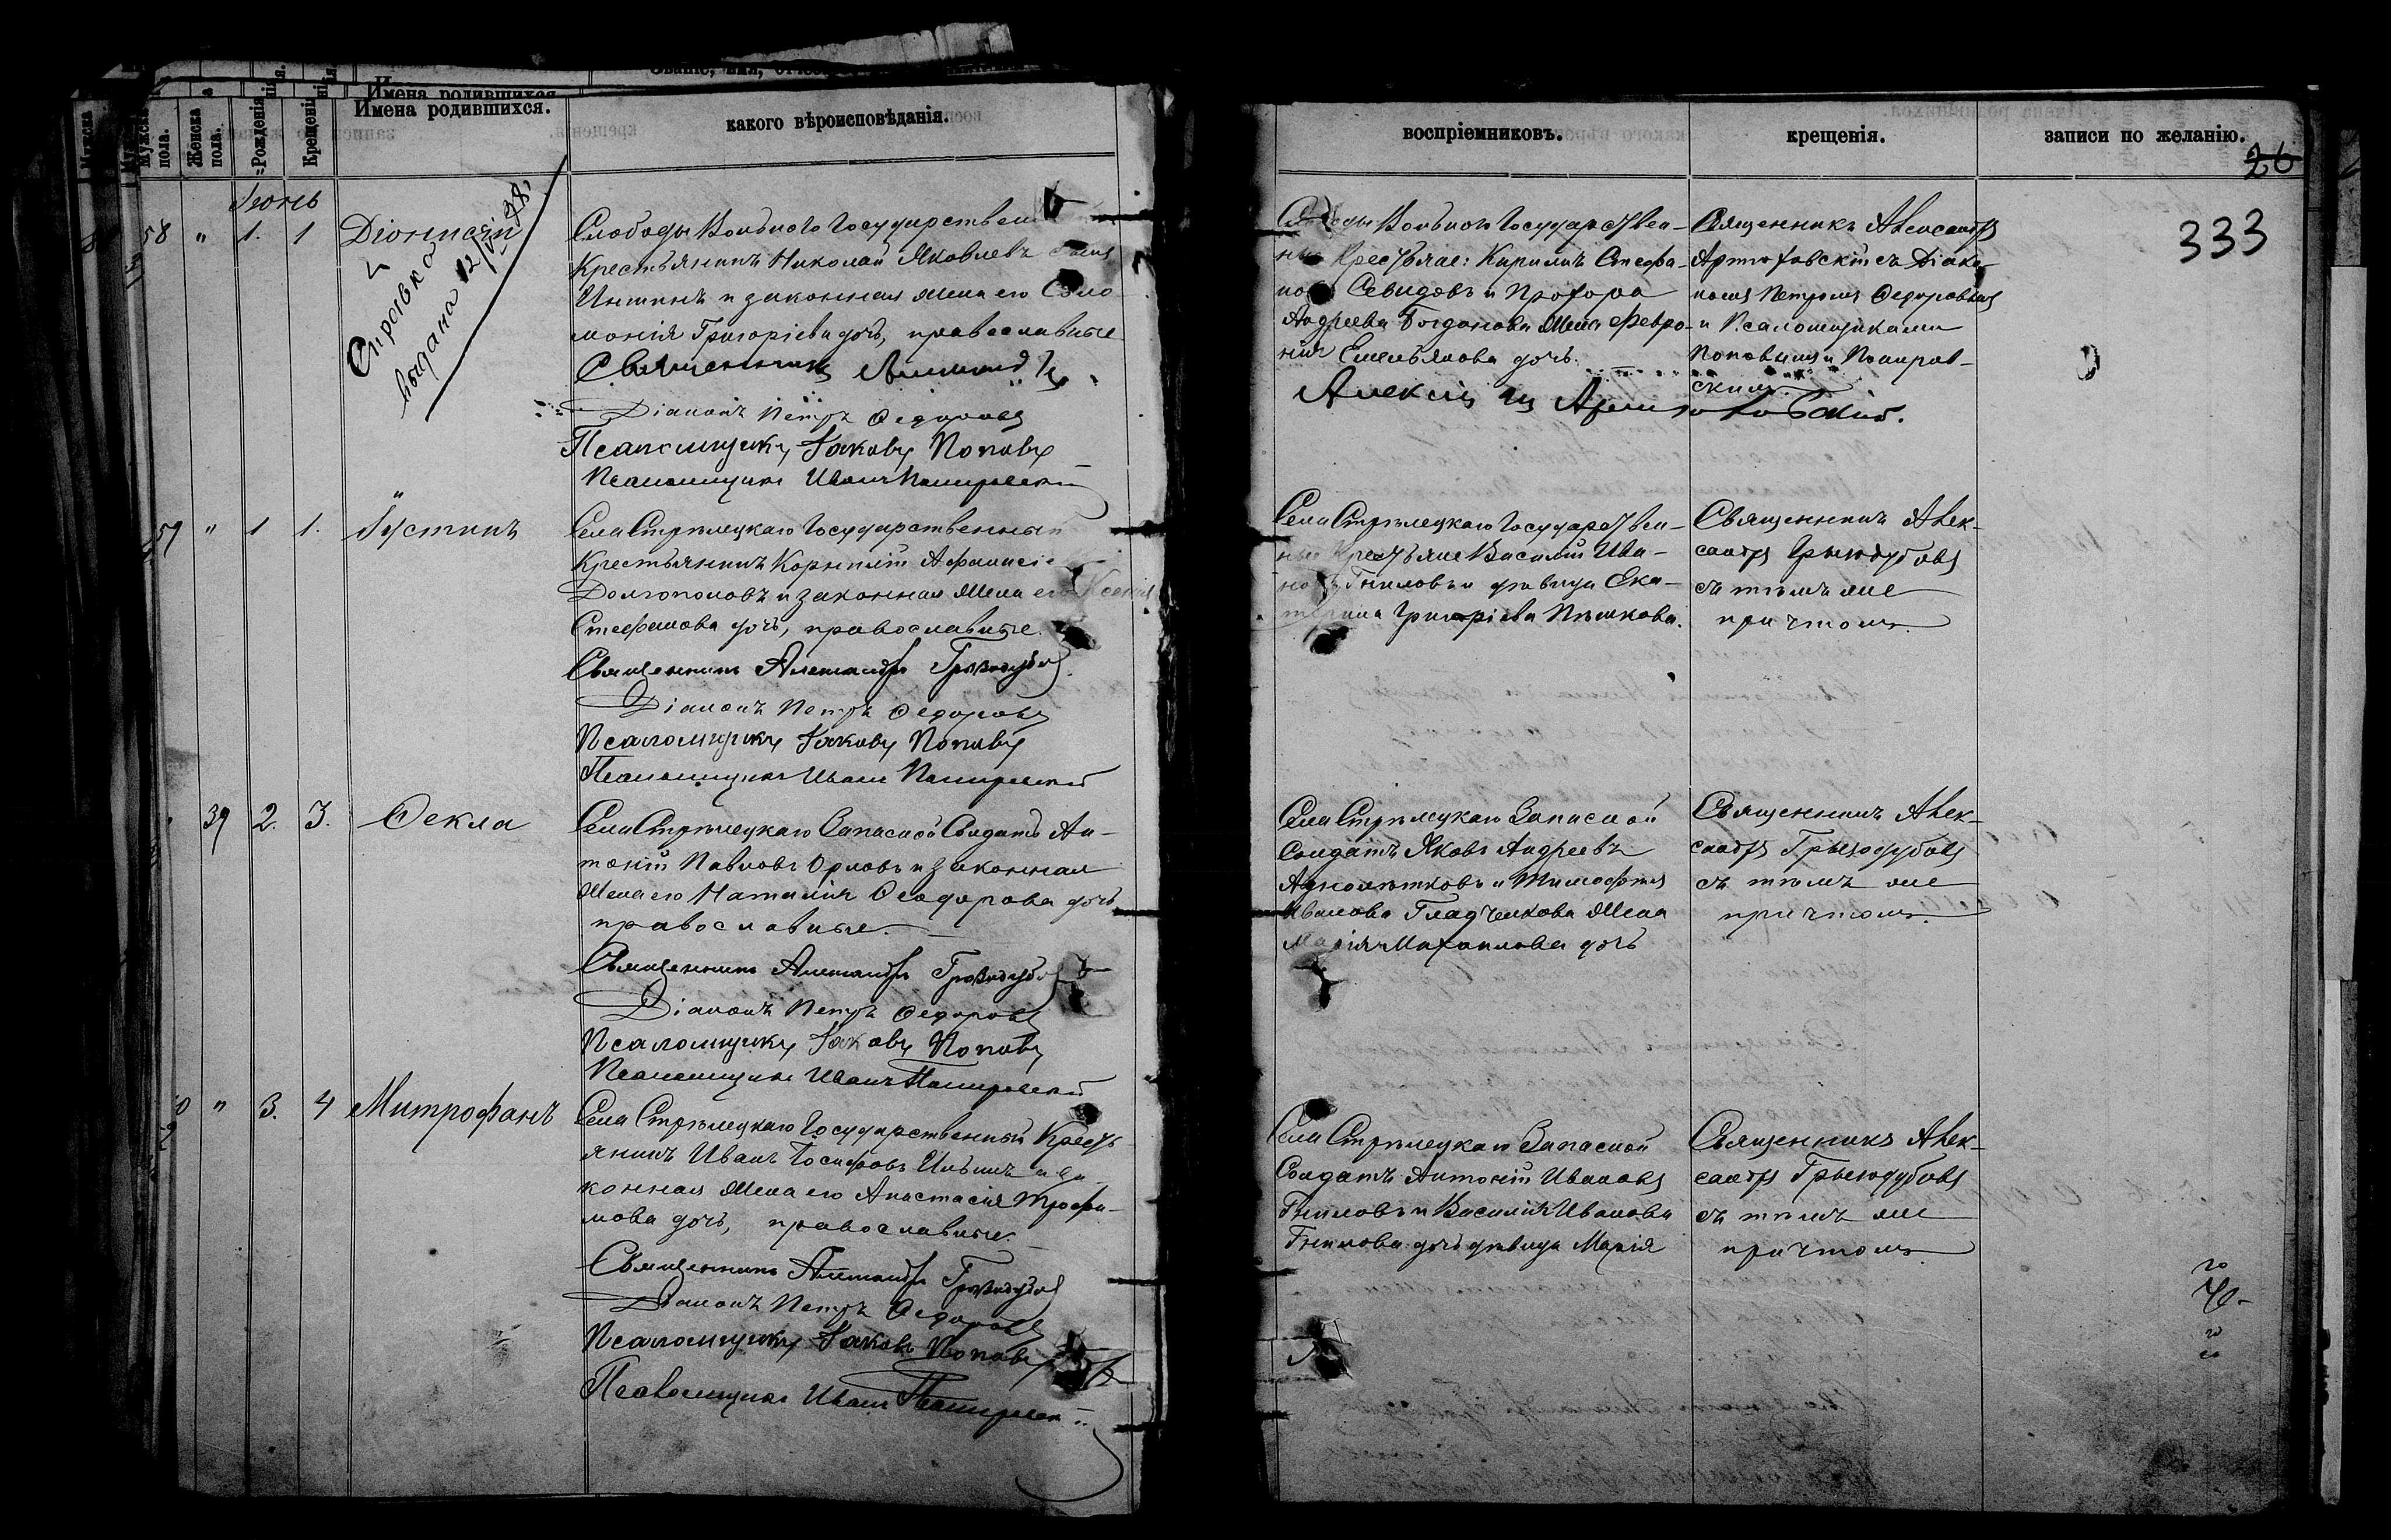 Имена родившихся.
какого вѣроисповѣданія.
Мужска пола.
Женска пола.
Рожденія
Крещені
Іюнь
58 " 1. 1 Діонисій
Справка
выдана
Слободы Вольного Государствен
Крестьянинъ Николай Яковлевъ
и законная жена его Соло
монія Григоріева дочь, православные
Священникъ
Діаконъ Петръ Ѳедоровъ
Псаломщикъ Іаковъ Поповъ
Псаломщикъ Иванъ
59 " 1 1. Іустинъ
Села Стрѣлецкаго Государственный
Крестьянинъ Корнилій Афанасіе
Долгополовъ и законная жена его Ксенія
Стефанова дочь, православные.
Священникъ Александръ Грызодубов
Діаконъ Петръ Ѳедоровъ
Псаломщикъ Іаковъ Поповъ
Псаломщикъ Иванъ
39 2. 3. Ѳекла
Села Стрѣлецкаго Запасной Солдатъ Ан-
тоній Павловъ Орловъ и законная
жена его Наталія Ѳеодорова дочь
православные.
Священникъ Александръ Грызодубов
Діаконъ Петръ Ѳедоровъ
Псаломщикъ Іаковъ Поповъ
Псаломщикъ Иванъ
0 " 3. 4 Митрофанъ
Села Стрѣлецкаго Государственный Кресть
янинъ Иванъ Іосифовъ Ильинъ и за-
конная жена его Анастасія Трофи-
мова дочь, православные.
Священникъ Александръ Грызодубов
Діаконъ Петръ Ѳедоровъ
Псаломщикъ Іаковъ Поповъ
Псаломщикъ Иванъ
воспріемниковъ.
крещенія.
записи по желанію.
26
333
Вольного Государствен-
Крестьяне: Кирилъ Стефа-
Севидовъ и Прохора
Андреева Богданова жена Февро-
нія Емельянова дочь.
Алексій
Священникъ Александръ
съ Діако-
номъ Петромъ Ѳедоровымъ
и Псаломщиками
Поповымъ и
скимъ.
Села Стрѣлецкаго Государствен-
ные Крестьяне Василій Ива-
новъ Гниловъ и дѣвица Ека-
терина Григоріева Пѣшкова.
Священникъ Алек-
сандръ Грызодубовъ
съ тѣмъ же
причтомъ.
Села Стрѣлецкаго Запасной
Солдатъ Яковъ Андреевъ
и Тимофея
Иванова Гладченкова жена
Марія Михаилова дочь
Священникъ Алек-
сандръ Грызодубовъ
съ тѣмъ же
причтомъ.
Села Стрѣлецкаго Запасной
Солдатъ Антоній Ивановъ
Гниловъ и Василія Иванова
Гнилова дочь дѣвица Марія
Священникъ Алек-
сандръ Грызодубовъ
съ тѣмъ же
причтомъ.